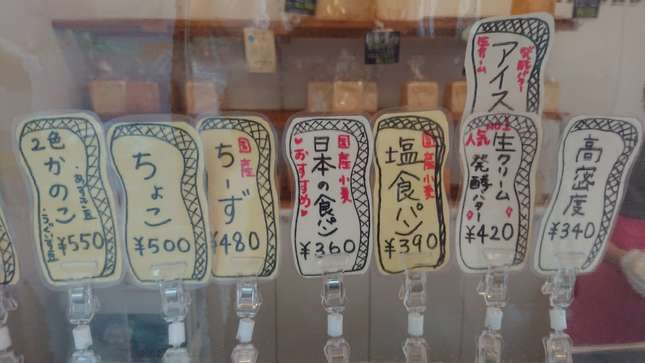 2色かのこ
あずき豆
うぐいす豆
¥550
ちょこ
¥500
国産
ちーず
¥480
国産小麦
日本の食パン
♥おすすめ♥
¥360
国産小麦
塩食パン
¥390
発酵バター
アイス
生クリーム
人気No.1
生クリーム
発酵バター
¥420
高密度
¥340